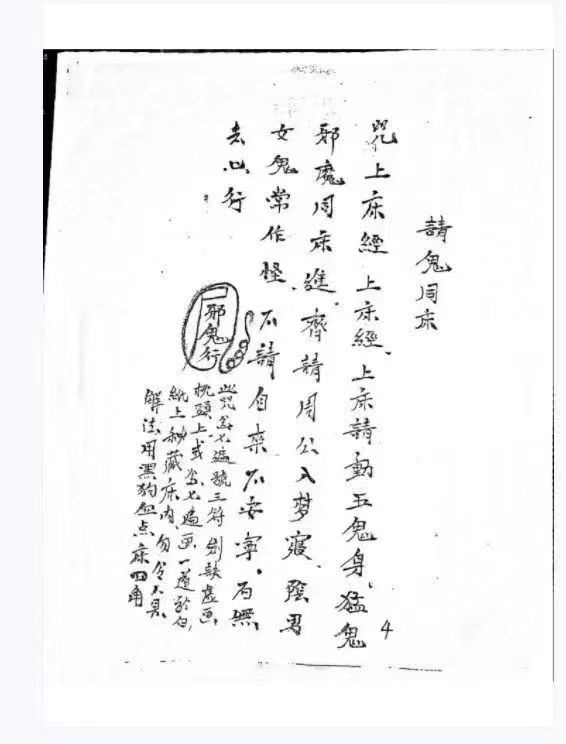 請鬼同床
咒上床經上床經、上床請動五鬼身、猛鬼
邪魔同床進、齊請周公入梦寢。陰男
女鬼常作怪、不請自來不安寧。有無
去心行
邪鬼行
此咒念七遍號三符劍訣虛画
枕頭上或念七遍画一道於白
紙上秘藏床内勿令人見
解法用黑狗血点床四角
4